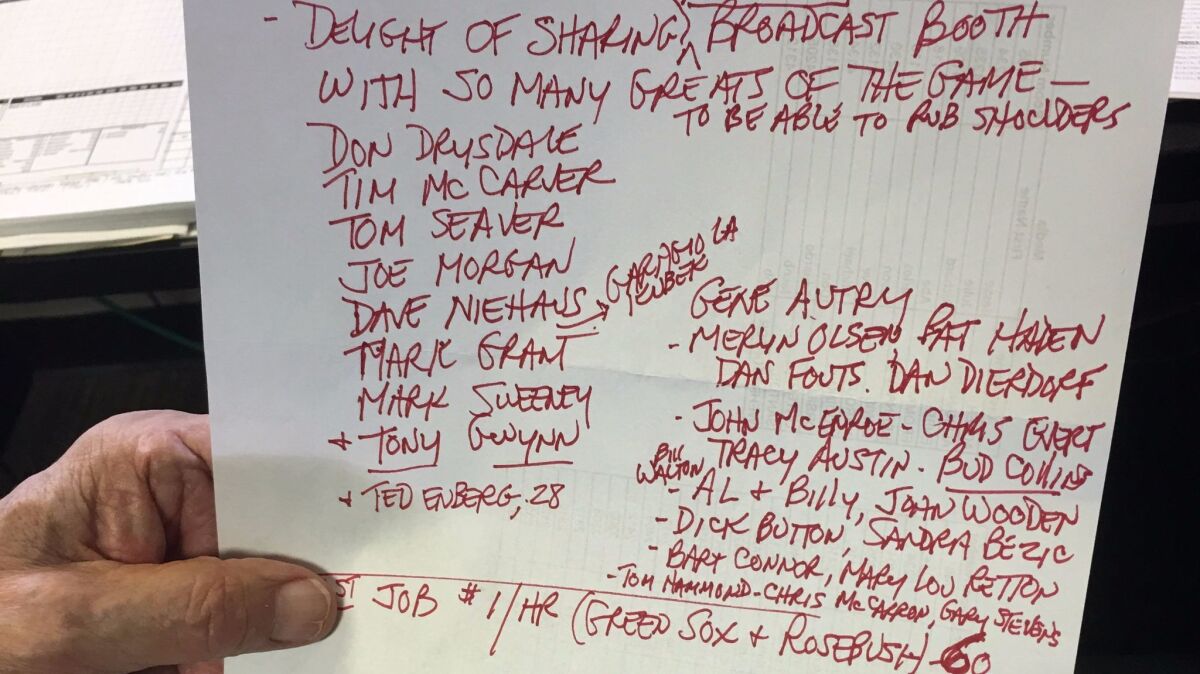 - DELIGHT OF SHARING, BROADCAST BOOTH
WITH SO MANY GREATS OF THE GAME —
TO BE ABLE TO RUB SHOULDERS
DON DRYSDALE
TIM MCCARVER
TOM SEAVER
JOE MORGAN
DAVE NIEHAUS → GARAGIOLA
MARK GRANT
MARK SWEENEY
+ TONY GWYNN
+ TED ENBERG, 28
GENE AUTRY
- MERLIN OLSEN, PAT HADEN
DAN FOUTS. DAN DIERDORF
- JOHN MCENROE - CHRIS EVERT
TRACY AUSTIN. BUD COLLINS
BILL WALTON
- AL & BILLY, JOHN WOODEN
- DICK BUTTON, SANDRA BEZIC
- BART CONNOR, MARY LOU RETTON
- TOM HAMMOND - CHRIS MCCARRON, GARY STEVENS
ST JOB #1/HR (GREEN SOX + ROSEBUSH) - 60